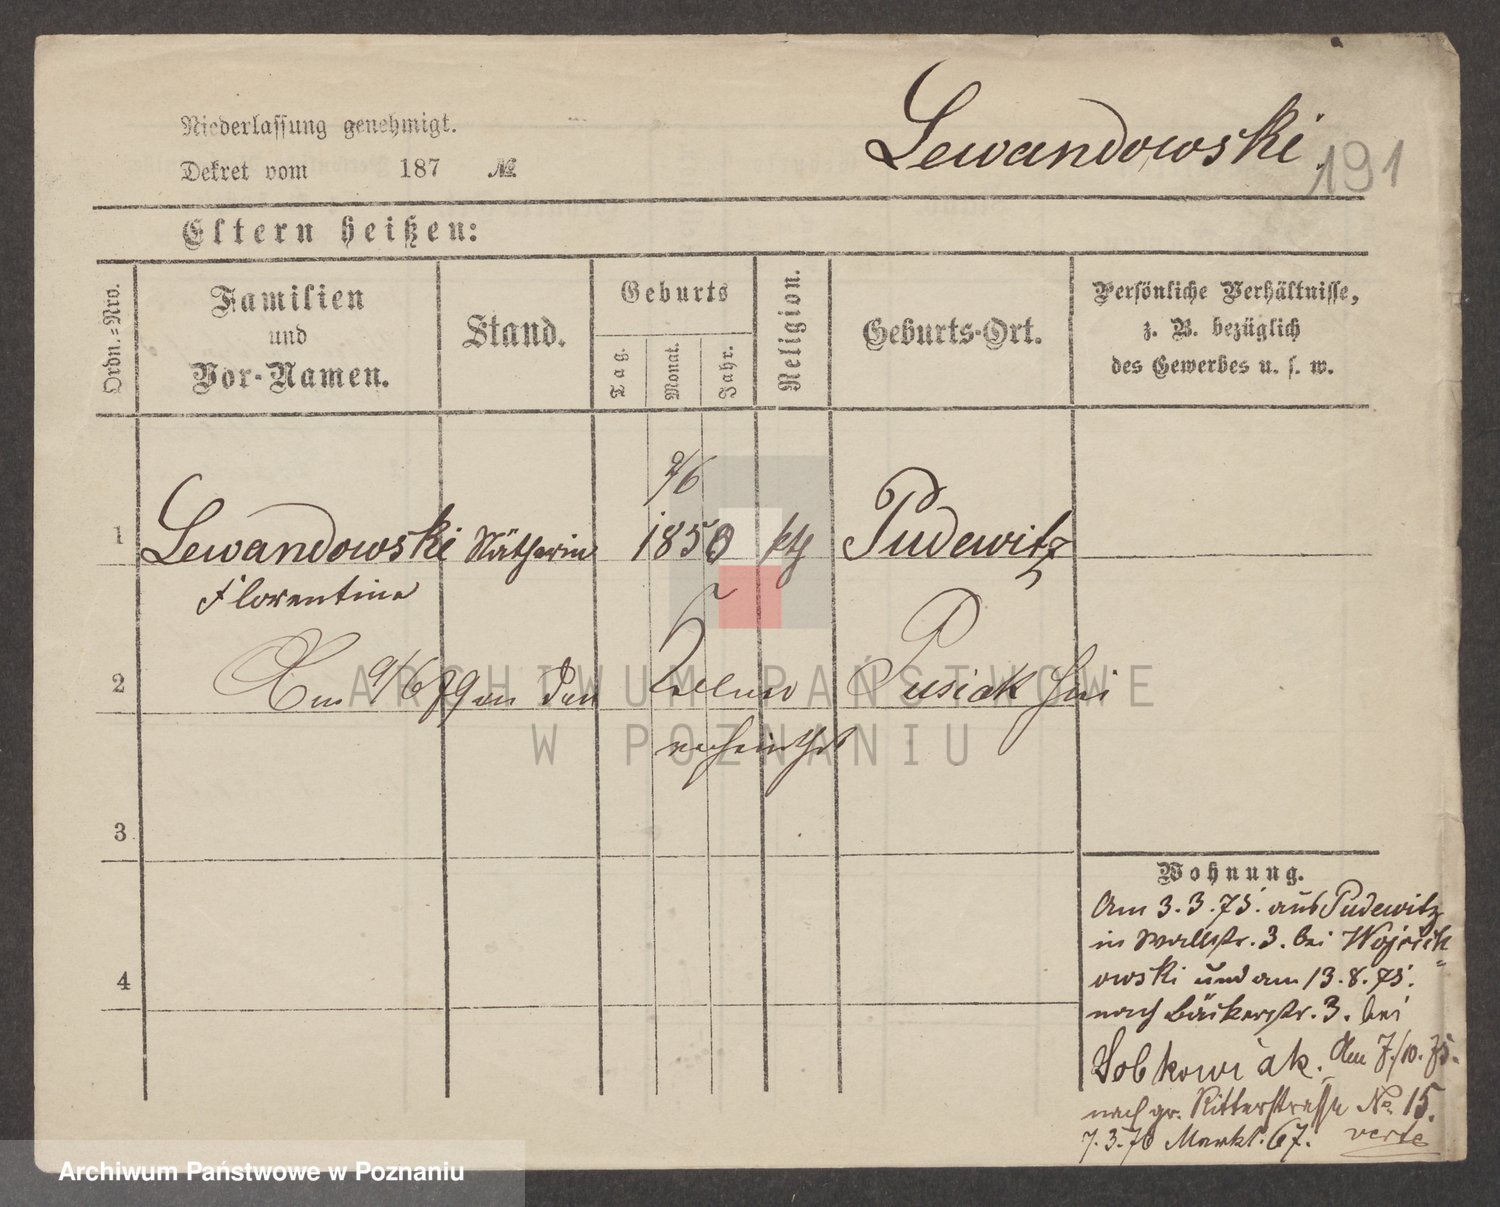 Niederlassung genehmigt.
Dekret vom 187 №
Lewandowski.
191
Eltern heißen:
Ordn.=Nro.
Familien
und
Vor-Namen.
Stand.
Geburts
Tag.
Monat.
Jahr.
Religion.
Geburts-Ort.
Persönliche Verhältnisse,
z. B. bezüglich
des Gewerbes u. s. w.
2/6
1 Lewandowski Nätherin 1850 kth Pudewitz
Florentine
2 Am 9/6 79 an den Pusiak
3
4
ARCHIWUM PAŃSTWOWE
W POZNANIU
Wohnung.
Am 3.3.75. aus Pudewitz
in Wallstr. 3. bei Wojciech=
owski und am 13.8.75.
nach Bäckerstr. 3. bei
Sobkowiak. Am 7./10.75.
nach gr. Ritterstrasse No. 15.
7.3.76 Markt 67. verte
Archiwum Państwowe w Poznaniu